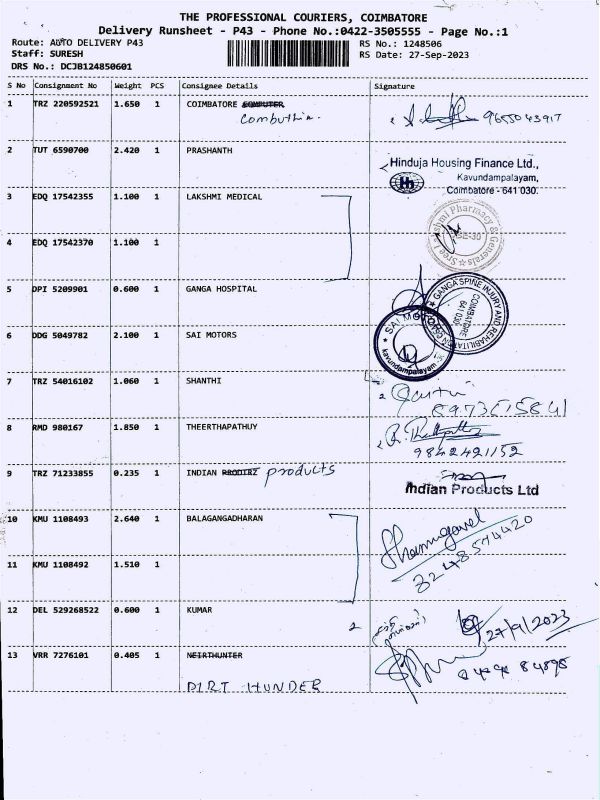 THE PROFESSIONAL COURIERS, COIMBATORE
Delivery Runsheet - P43 - Phone No.:0422-3505555 - Page No.:1
Route: AUTO DELIVERY P43 RS No.: 1248506
Staff: SURESH RS Date: 27-Sep-2023
DRS No.: DCJB124850601
S No Consignment No Weight PCS Consignee Details Signature
1 TRZ 220592521 1.650 1 COIMBATORE COMPUTER
Combuthin. 9655043917
2 TUT 6590700 2.420 1 PRASHANTH
Hinduja Housing Finance Ltd.,
Kavundampalayam,
Coimbatore - 641 030.
3 EDQ 17542355 1.100 1 LAKSHMI MEDICAL
Sree Lakshmi Pharmacy & Generals
CBE-30
4 EDQ 17542370 1.100 1
5 DPI 5209901 0.600 1 GANGA HOSPITAL
GANGA SPINE INJURY AND REHABILITATION
COIMBATORE
641 030
6 DDG 5049782 2.100 1 SAI MOTORS
SAI MOTORS
Kavundampalayam
7 TRZ 54016102 1.060 1 SHANTHI
8973615841
8 RMD 980167 1.850 1 THEERTHAPATHUY
9842421152
9 TRZ 71233855 0.235 1 INDIAN PRODTRZ products
Indian Products Ltd
10 KMU 1108493 2.640 1 BALAGANGADHARAN
Shanmugavel
8248574420
11 KMU 1108492 1.510 1
12 DEL 529268522 0.600 1 KUMAR
27/9/2023
13 VRR 7276101 0.405 1 NEIRTHUNTER
DIRT HUNDER